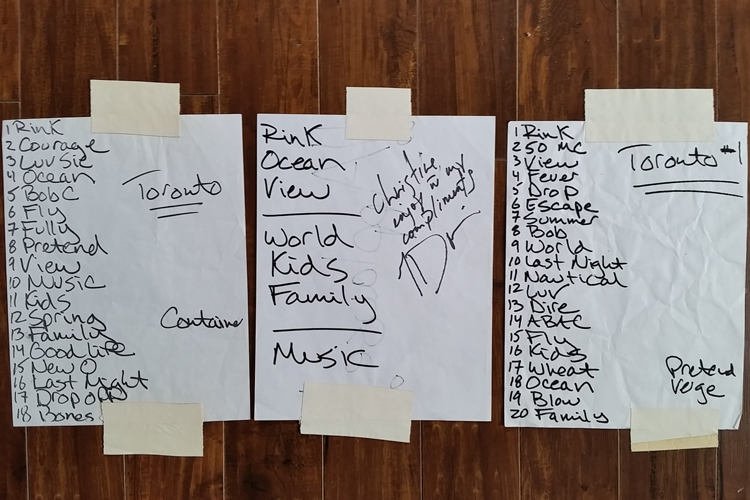 1 Rink
2 Courage
3 Luv Sic
4 Ocean
5 Bob C
6 Fly
7 Fully
8 Pretend
9 View
10 Music
11 Kids
12 Spring
13 Family
14 Good Life
15 New O
16 Last Night
17 Drop off
18 Bones
Toronto
Container
Rink
Ocean
View
World
Kids
Family
Music
Christine,
enjoy w my
compliments
1 Rink
2 50 MC
3 View
4 Fever
5 Drop
6 Escape
7 Summer
8 Bob
9 World
10 Last Night
11 Nautical
12 Luv
13 Dire
14 ABAC
15 Fly
16 Kids
17 Wheat
18 Ocean
19 Blow
20 Family
Toronto #1
Pretend
Verge